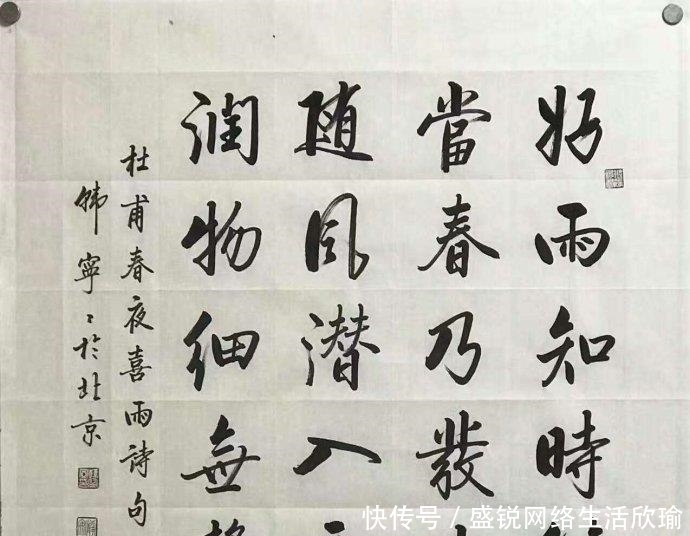 好雨知時
當春乃發
随风潜入
润物细無
杜甫春夜喜雨詩句
韩寧〻於北京
快传号／盛锐网络生活欣瑜